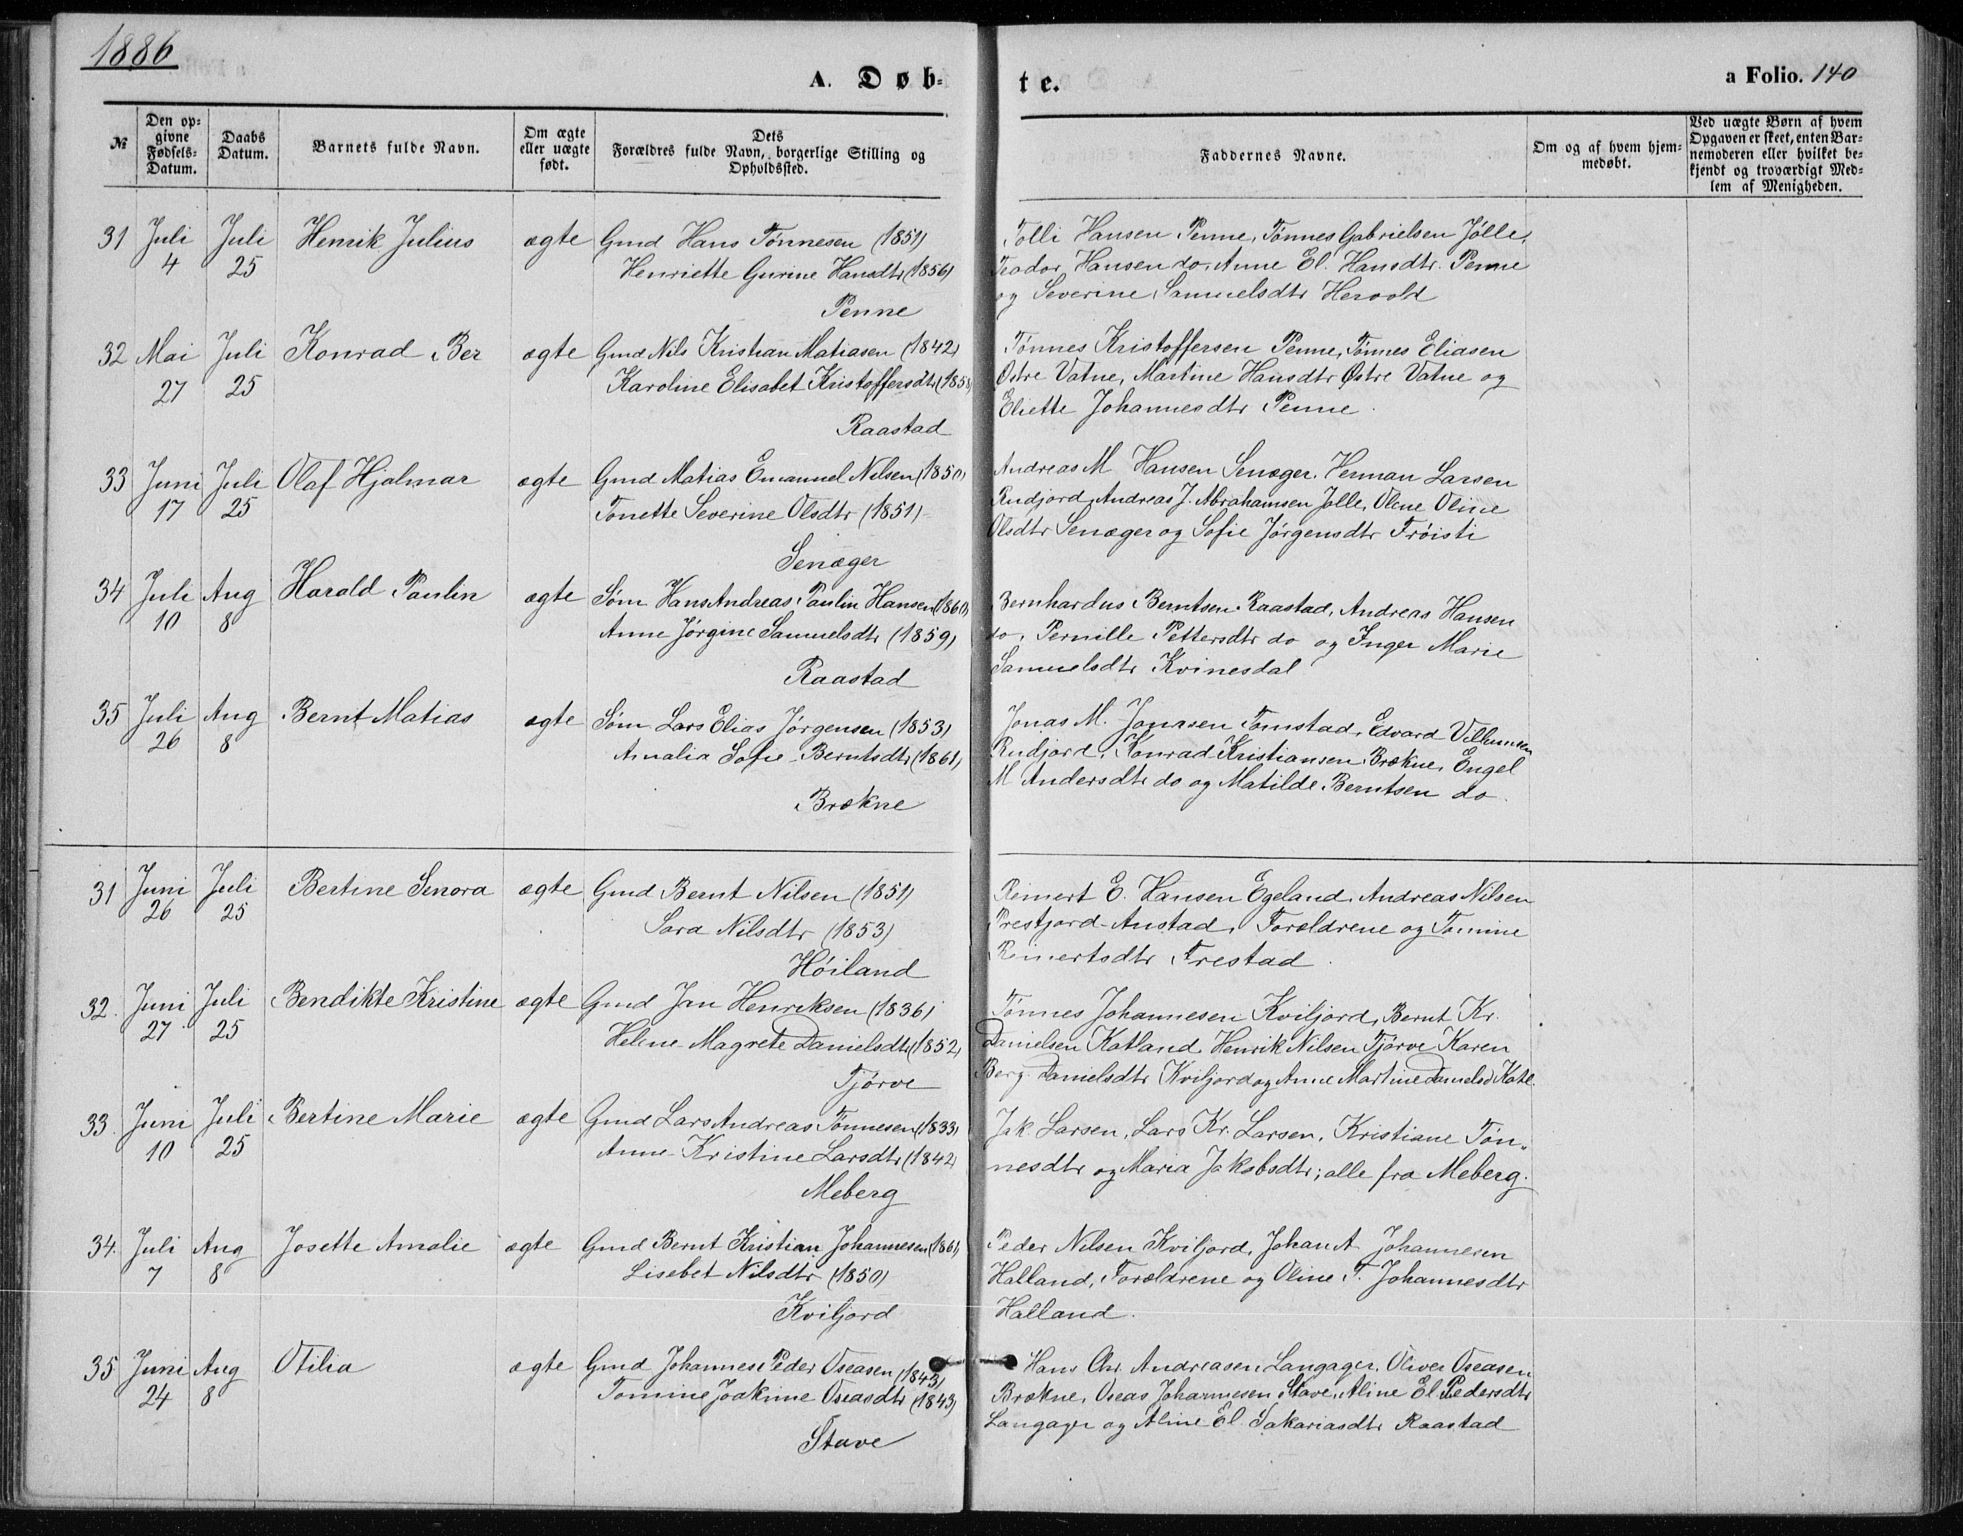 1886
A. Døb-
te.
a Folio. 140
№
Den op-
givne
Fødsels-
Datum.
Daabs
Datum.
Barnets fulde Navn.
Om ægte
eller uægte
født.
Dets
Forældres fulde Navn, borgerlige Stilling og
Opholdssted.
Faddernes Navne.
Om og af hvem hjem-
medøbt.
Ved uægte Børn af hvem
Opgaven er skeet, enten Bar-
nemoderen eller hvilket be-
kjendt og troværdigt Med-
lem af Menigheden.
31 Juli 4 Juli 25 Henrik Julius ægte Gmd Hans Tønnesen (1851)
Henriette Gurine Hansdtr (1856)
Penne
Tolli Hansen Penne, Tønnes Gabrielsen Jølle,
Teodor Hansen do, Anne El. Hansdtr. Penne
og Severine Samuelsdtr Hervold
32 Mai 27 Juli 25 Konrad Ber ægte Gmd Nils Kristian Matiasen (1842)
Karoline Elisabet Kristoffersdtr (1858)
Raastad
Tønnes Kristoffersen Penne, Tønnes Eliasen
Østre Vatne, Martine Hansdtr Østre Vatne og
Eliette Johannesdtr Penne.
33 Juni 17 Juli 25 Olaf Hjalmar ægte Gmd Matias Emanuel Nilsen (1850)
Tonette Severine Olsdtr (1851)
Senæger
Andreas M Hansen Senæger, Herman Larsen
Rudjord, Andreas J. Abrahamsen Jølle, Olene Oline
Olsdtr Senæger og Sofie Jørgensdtr Trøisti
34 Juli 10 Aug 8 Harald Paulin ægte Søm Hans Andreas Paulin Hansen (1860)
Anne Jørgine Samuelsdtr (1859)
Raastad
Bernhardus Berntsen Raastad, Andreas Hansen
do, Pernille Pettersdtr do og Inger Marie
Samuelsdtr Kvinesdal
35 Juli 26 Aug 8 Bernt Matias ægte Søm Lars Elias Jørgensen (1853)
Amalia Sofie Berntsdtr (1861)
Brækne
Jonas M. Jonasen Tomstad, Edvard Villumsen
Rudjord, Konrad Kristiansen Brækne, Engel
M Andersdtr do og Matilde Berntsen do.
31 Juni 26 Juli 25 Bertine Senora ægte Gmd Bernt Nilsen (1851)
Sara Nilsdtr (1853)
Høiland
Reinert E. Hansen Egeland, Andreas Nilsen
Prestjord-Austad, Forældrene og Tomine
Reinertsdtr Frestad.
32. Juni 27 Juli 25 Bendikte Kristine ægte Gmd Jan Henriksen (1836)
Helene Magrete Danielsdtr (1852)
Tjørve
Tønnes Johannesen Kviljord, Bernt Kr.
Danielsen Katland, Henrik Nilsen Tjørve Karen
Berg. Danielsdtr Kviljord og Anne Martine Danielsd Katl.
33. Juni 10 Juli 25 Bertine Marie ægte Gmd Lars Andreas Tønnesen (1833)
Anne Kristine Larsdtr (1842)
Meberg
Jak. Larsen, Lars Kr. Larsen, Kristiane Tøn-
nesdtr og Maria Jakobsdtr; alle fra Meberg.
34. Juli 7 Aug 8 Josette Amalie ægte Gmd Bernt Kristian Johannesen (1861)
Lisebet Nilsdtr (1850)
Kviljord
Peder Nilsen Kviljord, Johan A Johannesen
Halland, Forældrene og Oline T. Johannesdtr
Halland.
35 Juni 24 Aug 8 Otilia ægte Gmd Johannes Peder Oseasen (1843)
Tomine Joakime Oseasdtr (1843)
Stave
Hans Chr. Andreasen Langager, Oliver Oseasen
Brækne, Oseas Johannesen Stave, Aline El. Pedersdtr
Langager og Aline El. Sakariasdtr Raastad